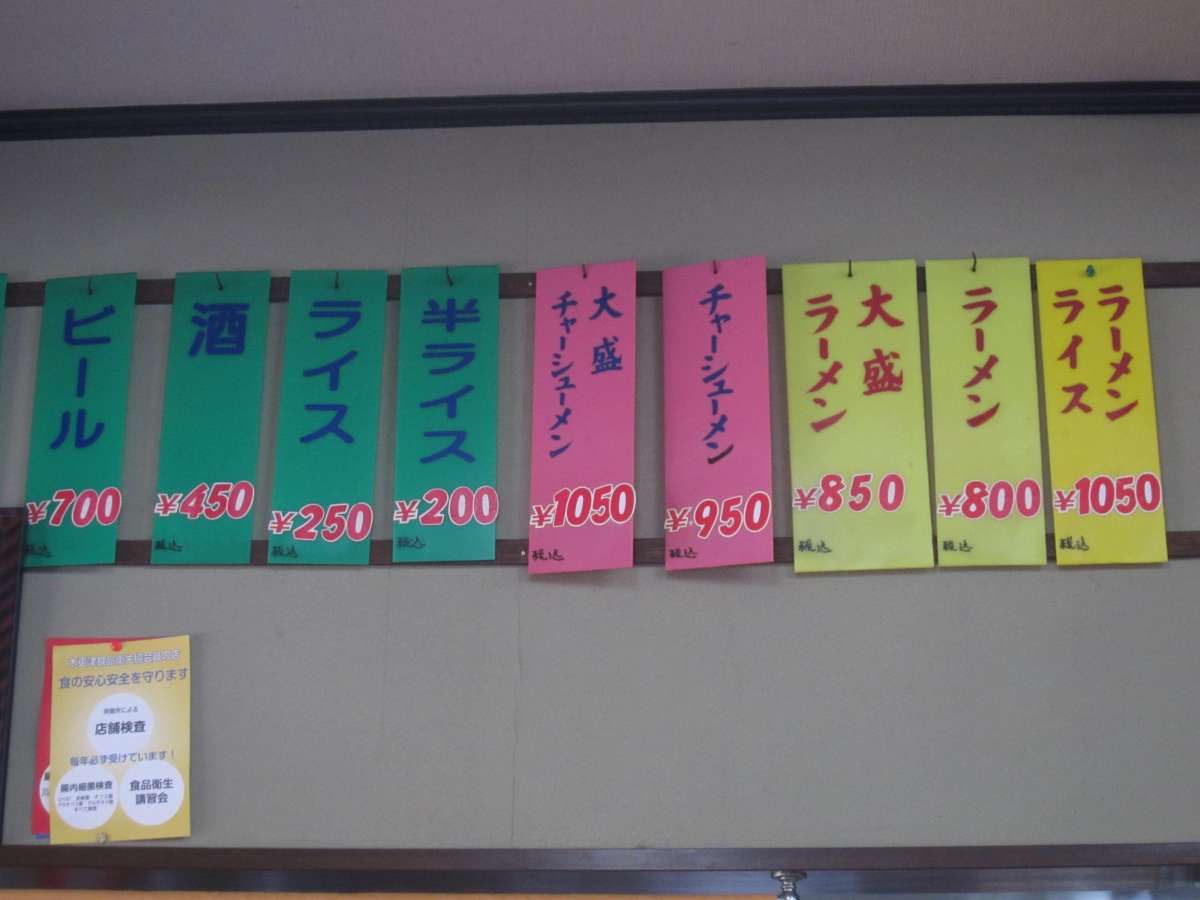 ラーメン
ライス
¥1050
税込
ラーメン
¥800
税込
大盛
ラーメン
¥850
税込
チャーシューメン
¥950
税込
大盛
チャーシューメン
¥1050
税込
半ライス
¥200
税込
ライス
¥250
税込
酒
¥450
税込
ビール
¥700
税込
食の安心安全を守ります
保健所による
店舗検査
毎年必ず受けています!
腸内細菌検査
食品衛生
講習会